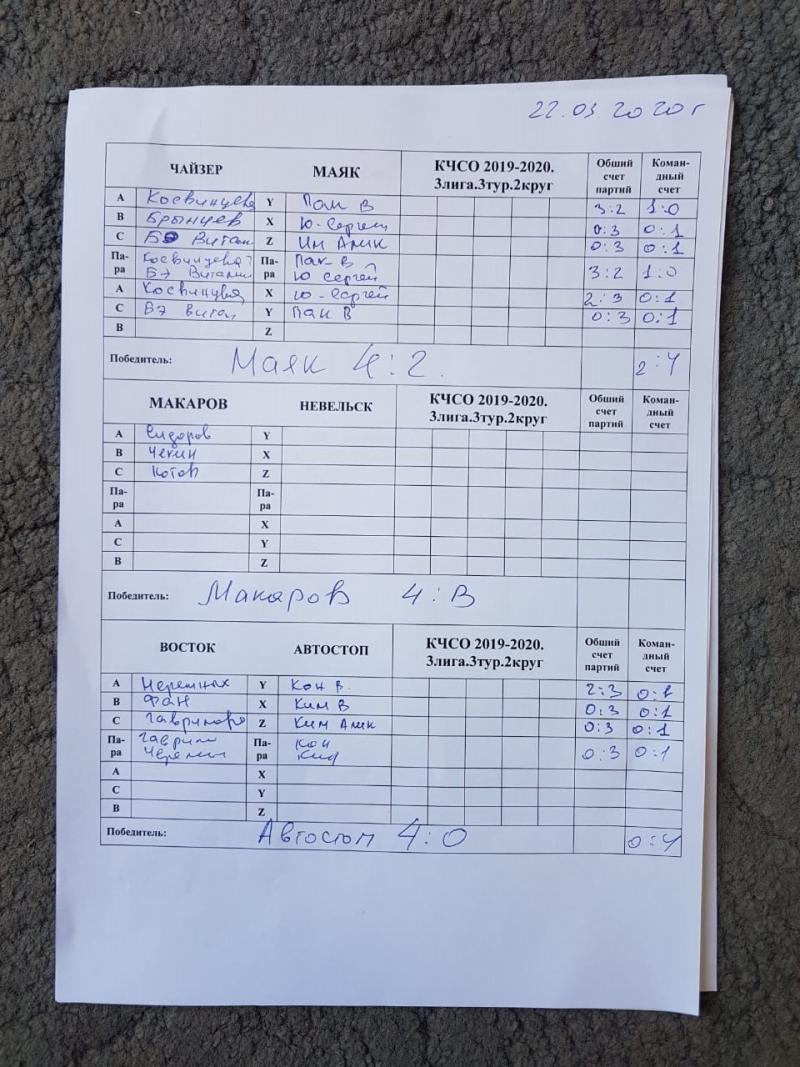 22.03.2020г
ЧАЙЗЕР МАЯК КЧСО 2019-2020. 3лига.3тур.2круг Общий счет партий Коман-дный счет
A Косвинцева Y Пак В 3:2 1:0
B Брынцев X Ю-Сергей 0:3 0:1
C Бэ Витали Z Им Алик 0:3 0:1
Па-ра Косвинцева Па-ра Пак-В
Бэ Виталий Ю Сергей 3:2 1:0
A X Ю-Сергей 2:3 0:1
C Бэ Витал Y Пак В 0:3 0:1
B Z
Победитель: Маяк 4:2. 2:4
МАКАРОВ НЕВЕЛЬСК КЧСО 2019-2020. 3лига.3тур.2круг Общий счет партий Коман-дный счет
A Сидоров Y
B Чекин X
C Котов Z
Па-ра Па-ра
A X
C Y
B Z
Победитель: Макаров 4:В
ВОСТОК АВТОСТОП КЧСО 2019-2020. 3лига.3тур.2круг Общий счет партий Коман-дный счет
A Y Кон В. 2:3 0:1
B Фан X Ким В 0:3 0:1
C Z Ким Алик 0:3 0:1
Па-ра Гаврил Па-ра Кон
0:3 0:1
A X
C Y
B Z
Победитель: Автостоп 4:0 0:4